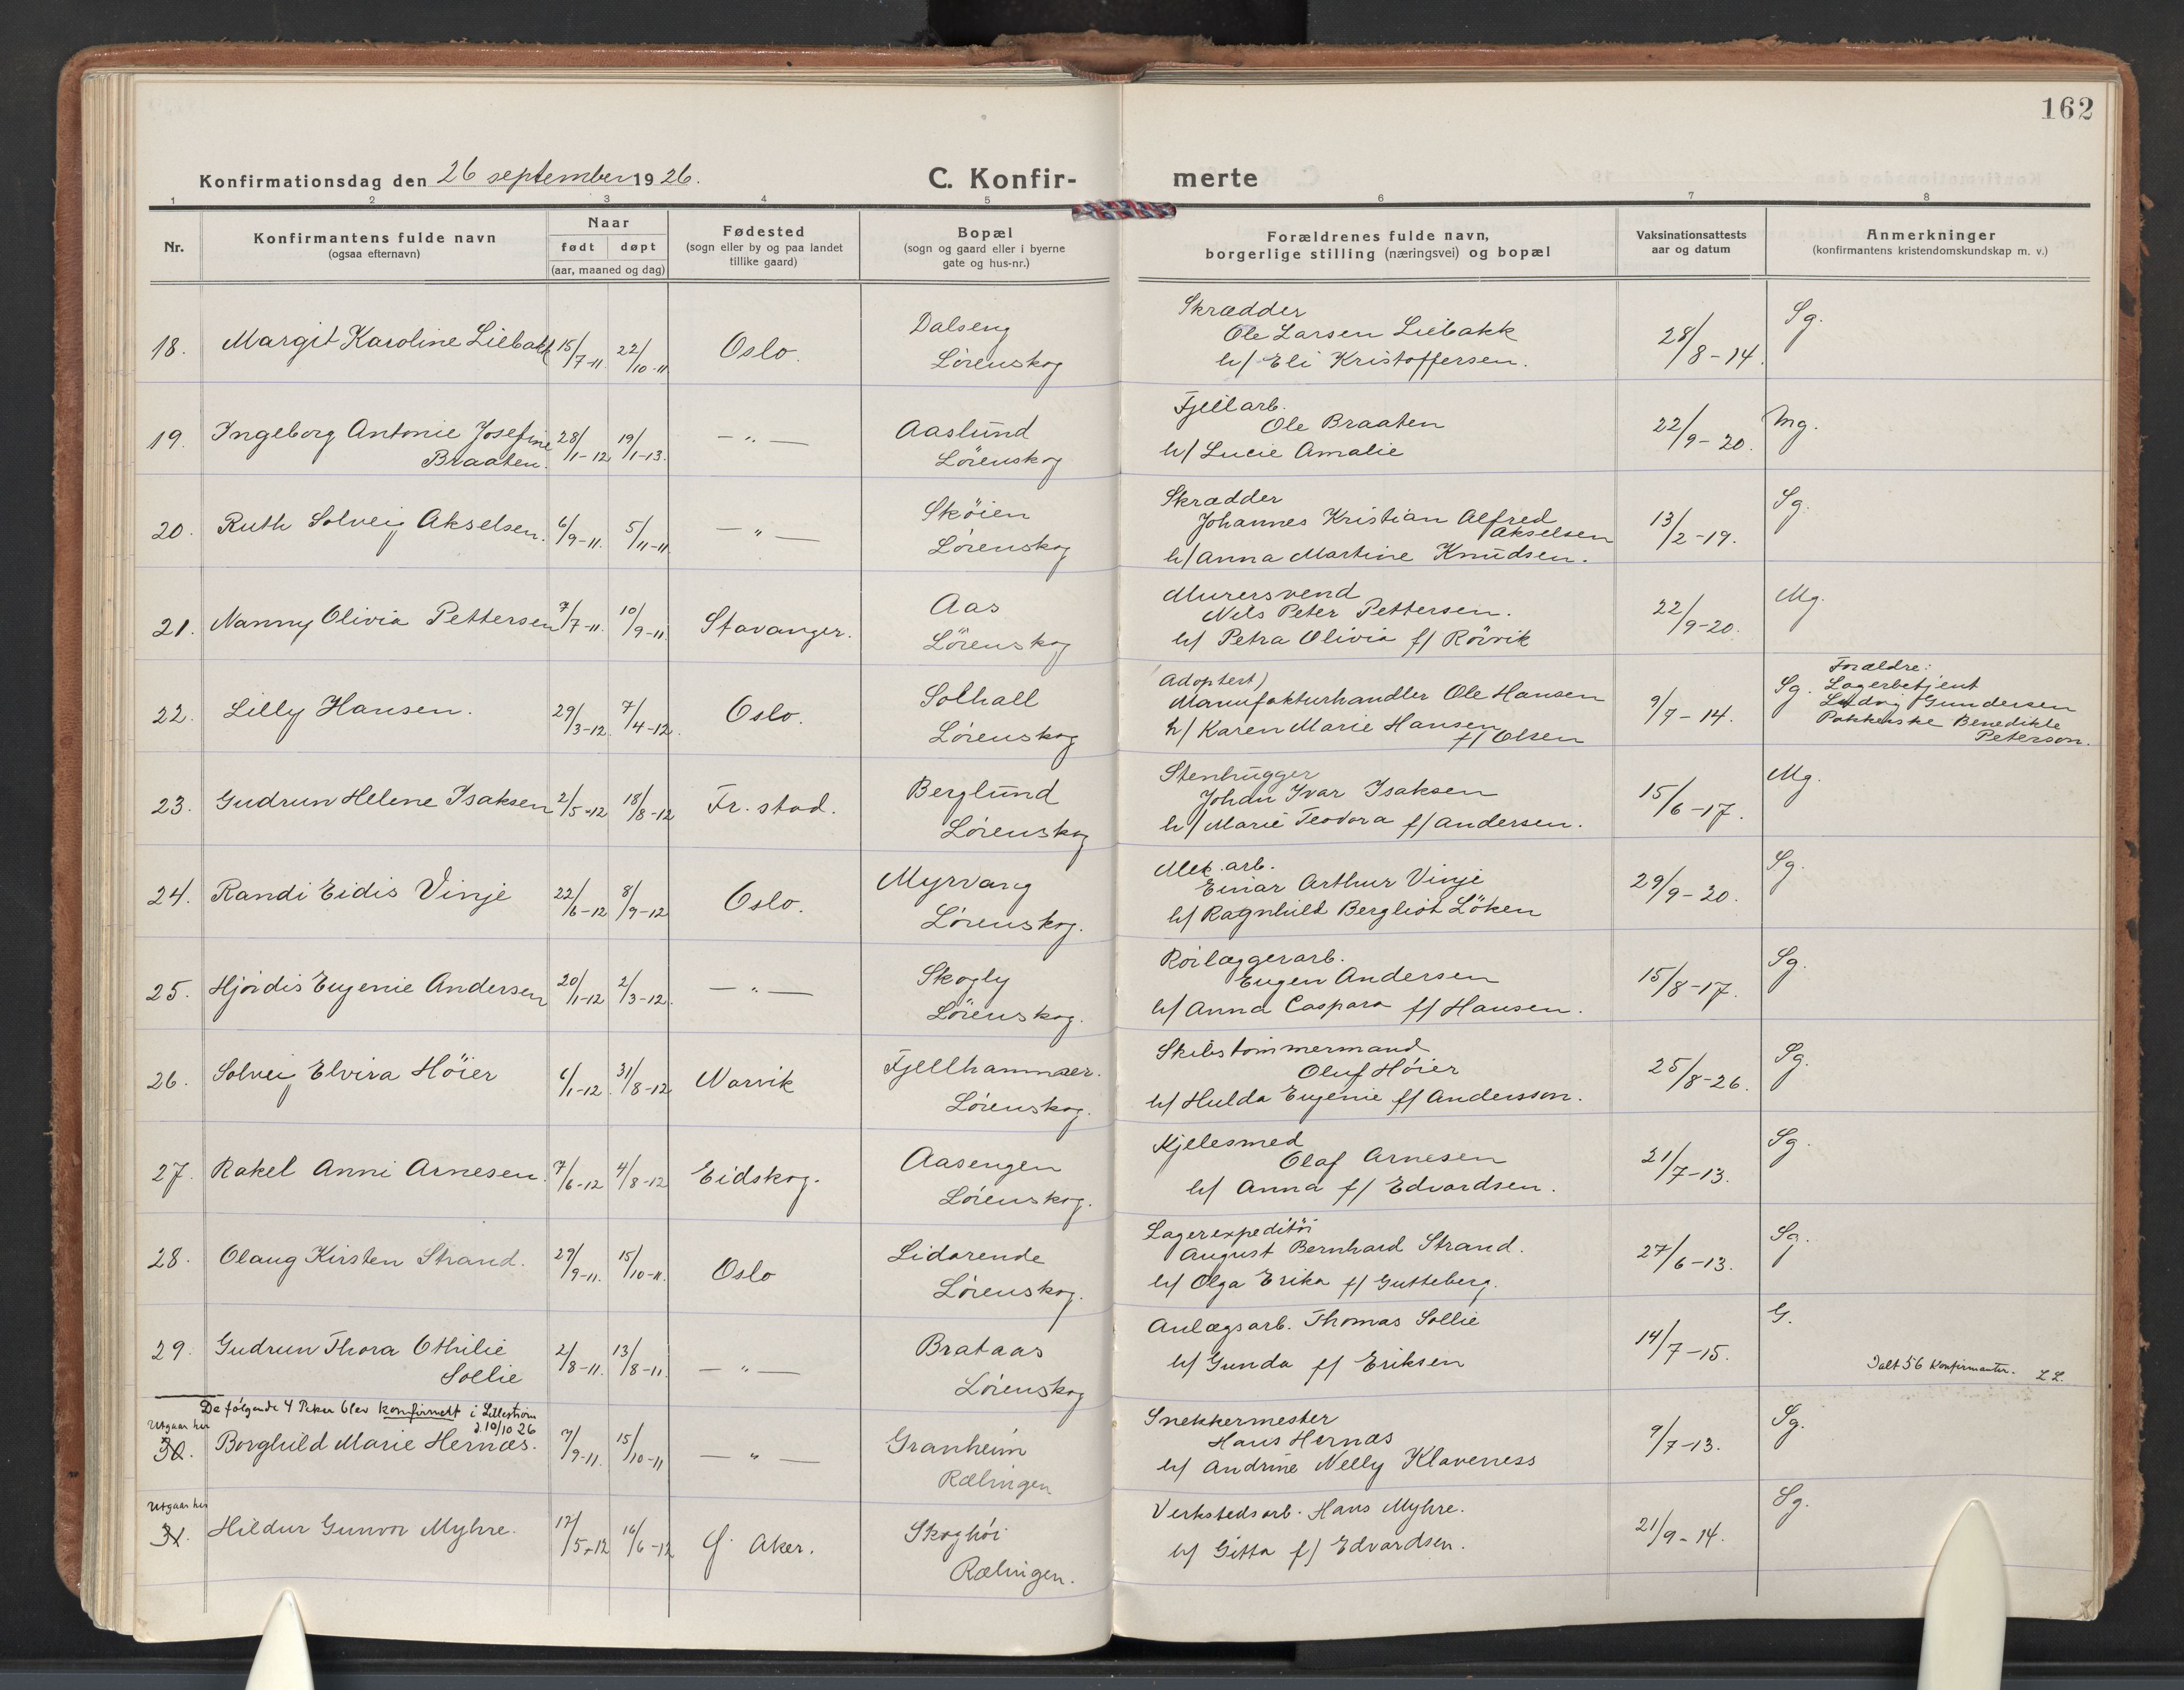 162
Konfirmationsdag den 26 september 1926.
C. Konfir- merte
1 2 3 4 5 6 7 8
Nr.
Konfirmantens fulde navn
(ogsaa efternavn)
Naar
født døpt
(aar, maaned og dag)
Fødested
(sogn eller by og paa landet
tillike gaard)
Bopæl
(sogn og gaard eller i byerne
gate og hus-nr.)
Forældrenes fulde navn,
borgerlige stilling (næringsvei) og bopæl
Vaksinationsattests
aar og datum
Anmerkninger
(konfirmantens kristendomskundskap m. v.)
18. Margit Karoline Liebakk 15/7-11. 22/10-11 Oslo.
Dalseng
Lørenskog
Skrædder
Ole Larsen Liebakk
h/ Eli Kristoffersen.
28/8-14. Sg.
19. Ingeborg Antonie Josefine
Braaten. 28/1-12 19/1-13. — " —
Aaslund
Lörenskog
Fjellarb.
Ole Braaten
h/ Lucie Amalie
22/9-20. Mg.
20. Ruth Solveig Akselsen. 6/9-11. 5/11-11 — " —
Sköien
Lørenskog
Skrædder
Johannes Kristian Alfred
Akselsen
h/ Anna Martine Knudsen.
13/2-19. Sg.
21. Nanny Olivia Pettersen 7/7-11. 10/9-11 Stavanger.
Aas
Lörenskog
Murersvend
Nils Peter Pettersen.
h/ Petra Olivia f/ Rörvik
22/9-20. Mg.
22. Lilly Hansen. 29/3-12 7/4-12. Oslo.
Solhall
Lørenskog
Adoptert)
Manufakturhandler Ole Hansen
h/ Karen Marie Hansen
f/ Olsen
9/7-14. Sg.
Forældre:
Lagerbetjent
Ludvig Gundersen
Pakkerske Benedikte
Peterson.
23. Gudrun Helene Isaksen 2/5-12 18/8-12 Fr. stad.
Berglund
Lørenskog
Stenhugger
Johan Ivar Isaksen
h/ Marie Teodora f/ Andersen.
15/6-17. Mg.
24. Randi Eidis Vinje 22/6-12 8/9-12 Oslo.
Myrvang
Lørenskog.
Mek. arb.
Einar Arthur Vinje
h/ Ragnhild Bergliot Löken
29/9-20. Sg.
25. Hjørdis Eugenie Andersen 20/1-12 2/3-12. — " —
Skogly
Lørenskog.
Rörlæggerarb.
Eugen Andersen
h/ Anna Caspara f/ Hansen.
15/8-17. Sg.
26. Solveig Elvira Höier 6/1-12 31/8-12 Narvik
Fjellhammer.
Lørenskog.
Skibstømmermand
Oluf Høier
h/ Hulda Eugenie f/ Andersson.
25/8-26. Sg.
27. Rakel Anni Arnesen. 7/6-12 4/8-12 Eidskog.
Aasengen
Lørenskog.
Kjelesmed
Olaf Arnesen
h/ Anna f/ Edvardsen.
21/7-13. Sg.
28. Olaug Kirsten Strand. 29/9-11. 15/10-11. Oslo
Lidarende
Lørenskog.
Lagerexpeditör
August Bernhard Strand.
h/ Olga Erika f/ Gutteberg.
27/6-13. Sg.
29. Gudrun Thora Othilie
Sollie 2/8-11. 13/8-11. — " —
Brataas
Lørenskog
Anlægsarb. Thomas Sollie
h/ Gunda f/ Eriksen
14/7-15. G.
Ialt 56 Konfirmanter. L L.
De følgende 4 Piker blev konfirmert i Lillestrøm
d. 10/10 26
Utgaar her
30. Borghild Marie Hernæs. 7/9-11. 15/10-11 — " —
Granheim
Rælingen
Snekkermester
Hans Hernæs
h/ Andrine Nelly Klaveness
9/7-13. Sg.
Utgaar her
31. Hildur Gunvor Myhre. 17/5-12 16/6-12 Aker.
Skoghöi
Rælingen.
Verkstedsarb. Hans Myhre.
h/ Gitta f/ Edvardsen.
21/9-14. Sg.